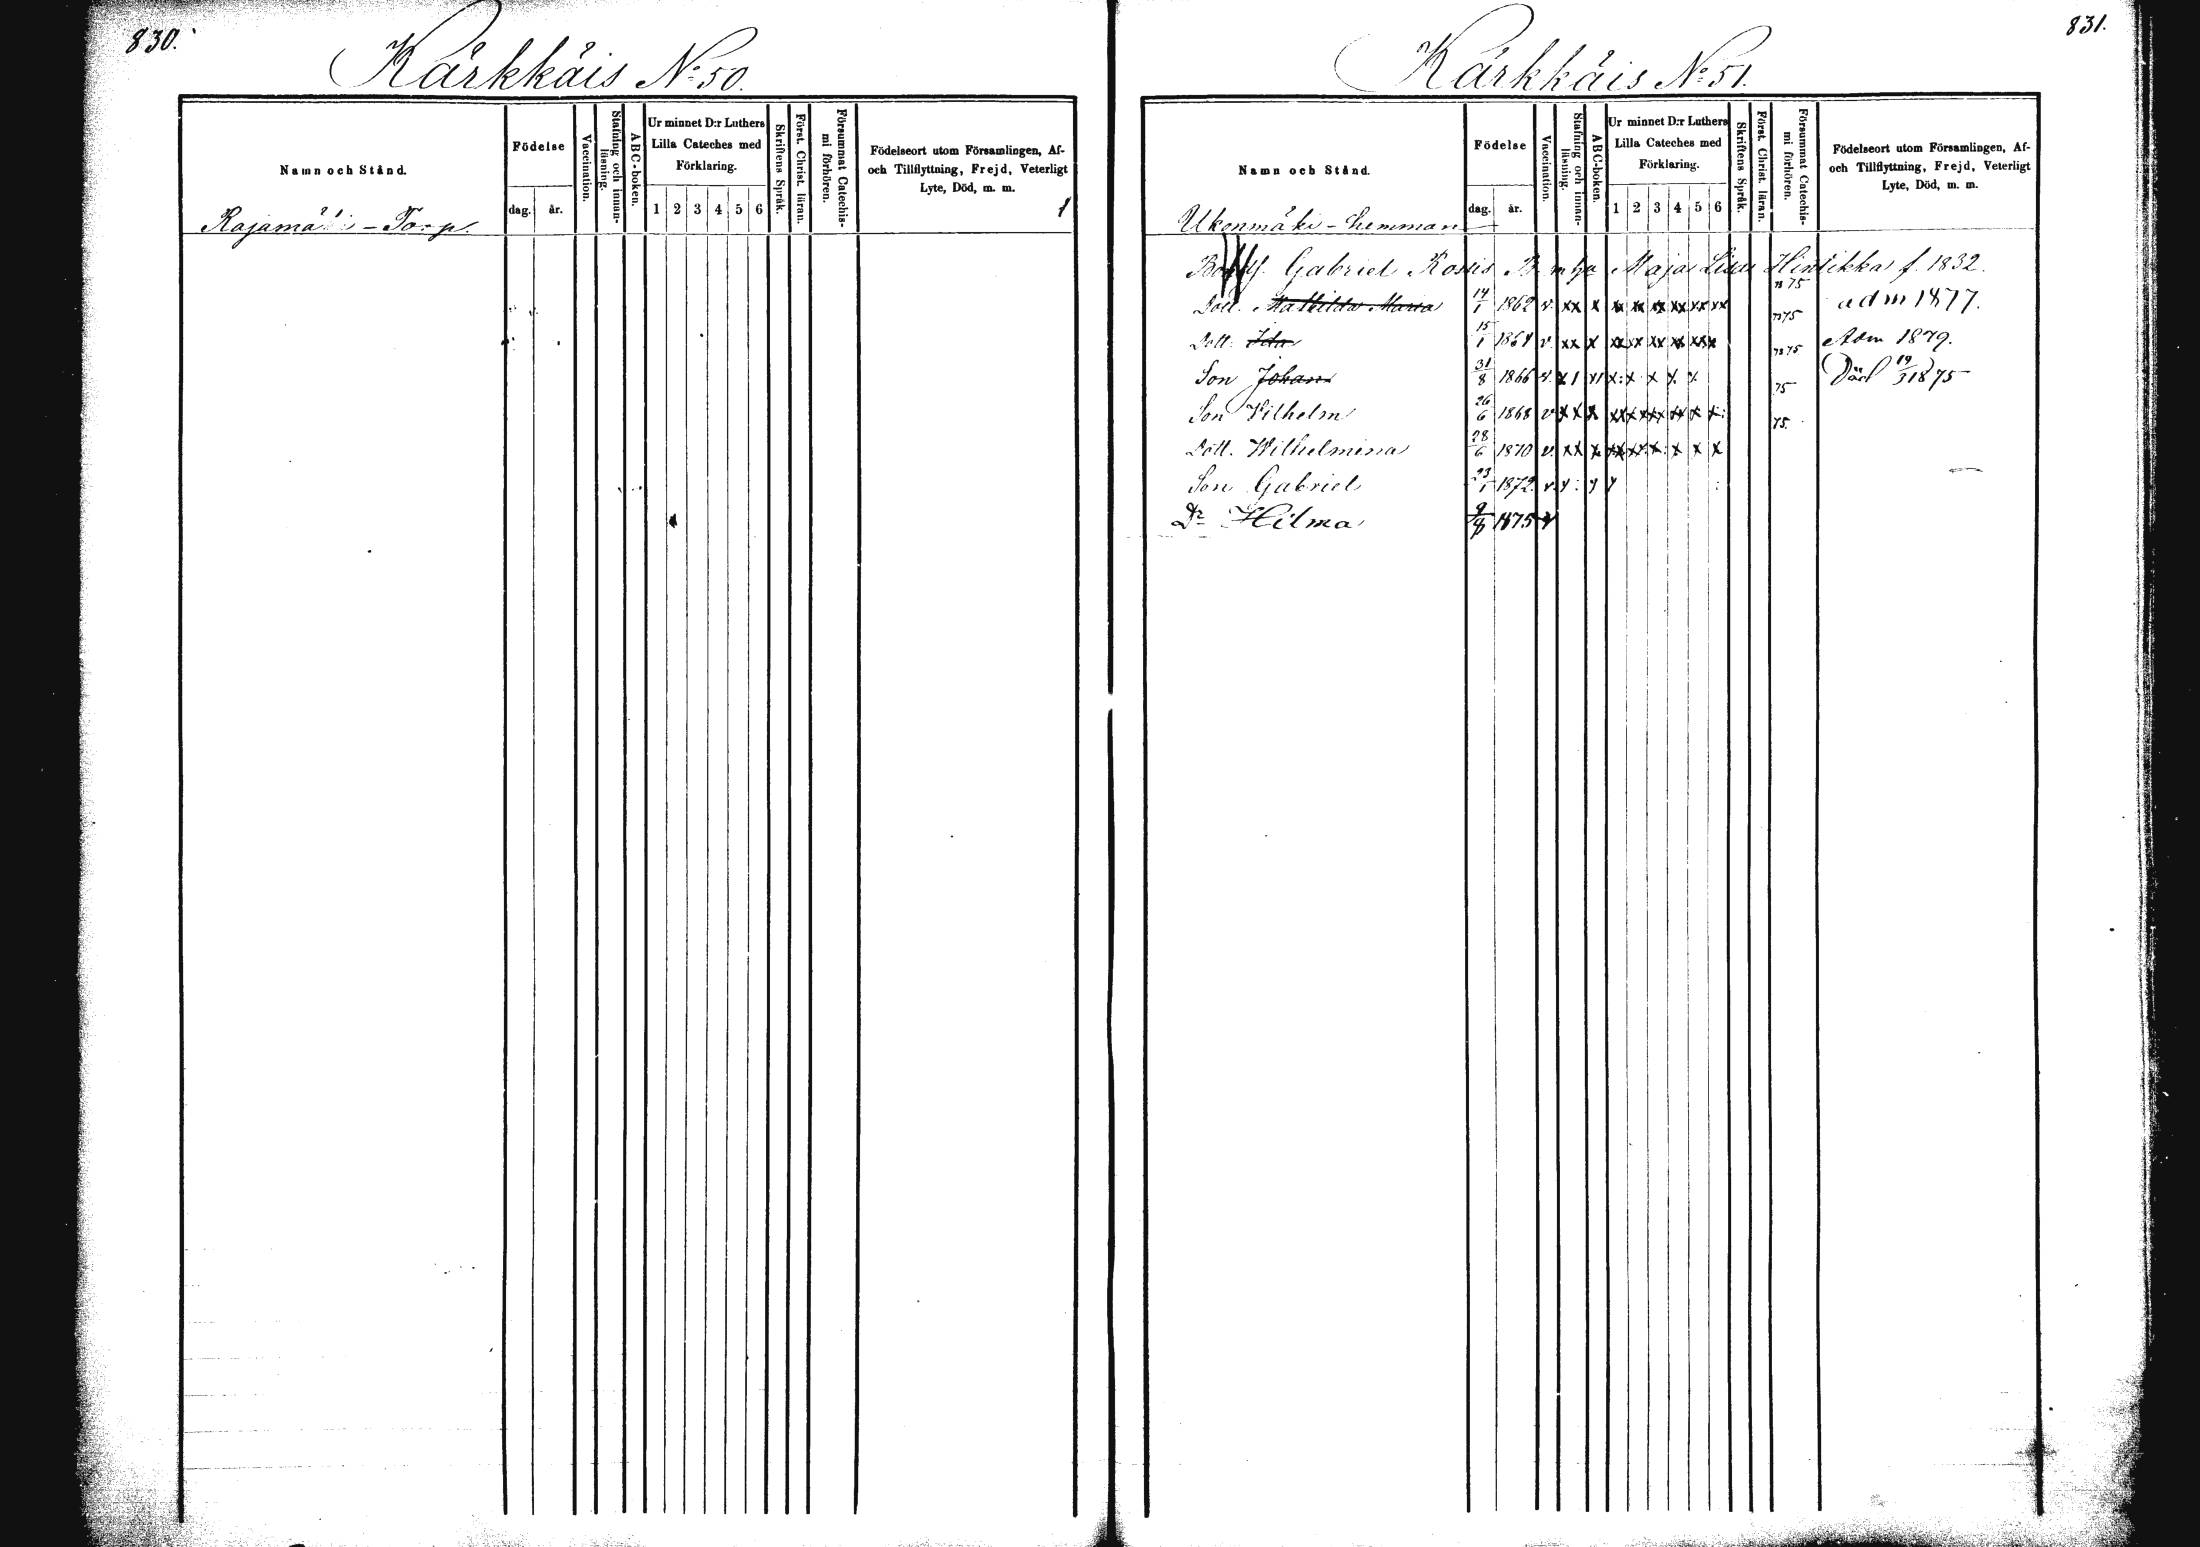 830.
Kärkkäis No 50.
Namn och Stånd.
Födelse
dag. år.
Vaccination.
Stafning och innanläsning.
ABC-boken.
Ur minnet D:r Luthers
Lilla Cateches med
Förklaring.
1 2 3 4 5 6
Skriftens Språk.
Först. Christ. läran.
Försummat Catechismi förhören.
Födelseort utom Församlingen, Af-
och Tillflyttning, Frejd, Veterligt
Lyte, Död, m. m.
Rajamäki - Torp.
831.
Kärkkäis No 51.
Namn och Stånd.
Födelse
dag. år.
Vaccination.
Stafning och innanläsning.
ABC-boken.
Ur minnet D:r Luthers
Lilla Cateches med
Förklaring.
1 2 3 4 5 6
Skriftens Språk.
Först. Christ. läran.
Försummat Catechismi förhören.
Födelseort utom Församlingen, Af-
och Tillflyttning, Frejd, Veterligt
Lyte, Död, m. m.
Ukonmäki - hemman
Gabriel Maja Lisa Hintikka f. 1832.
Dott. Mathilda Maria 14/1 1862 v. xx x adm 1877.
Dott. Ida 15/1 v. xx x Adm 1879.
Son Johan 31/8 1866 v. Död 19/3 1875
Son Vilhelm 26/6 1868 v xx x 75
Dott. Wilhelmina 28/6 1870 v. xx x 75.
Son Gabriel 23/1 1872 v.
Dr Hilma 9/8 1875 v